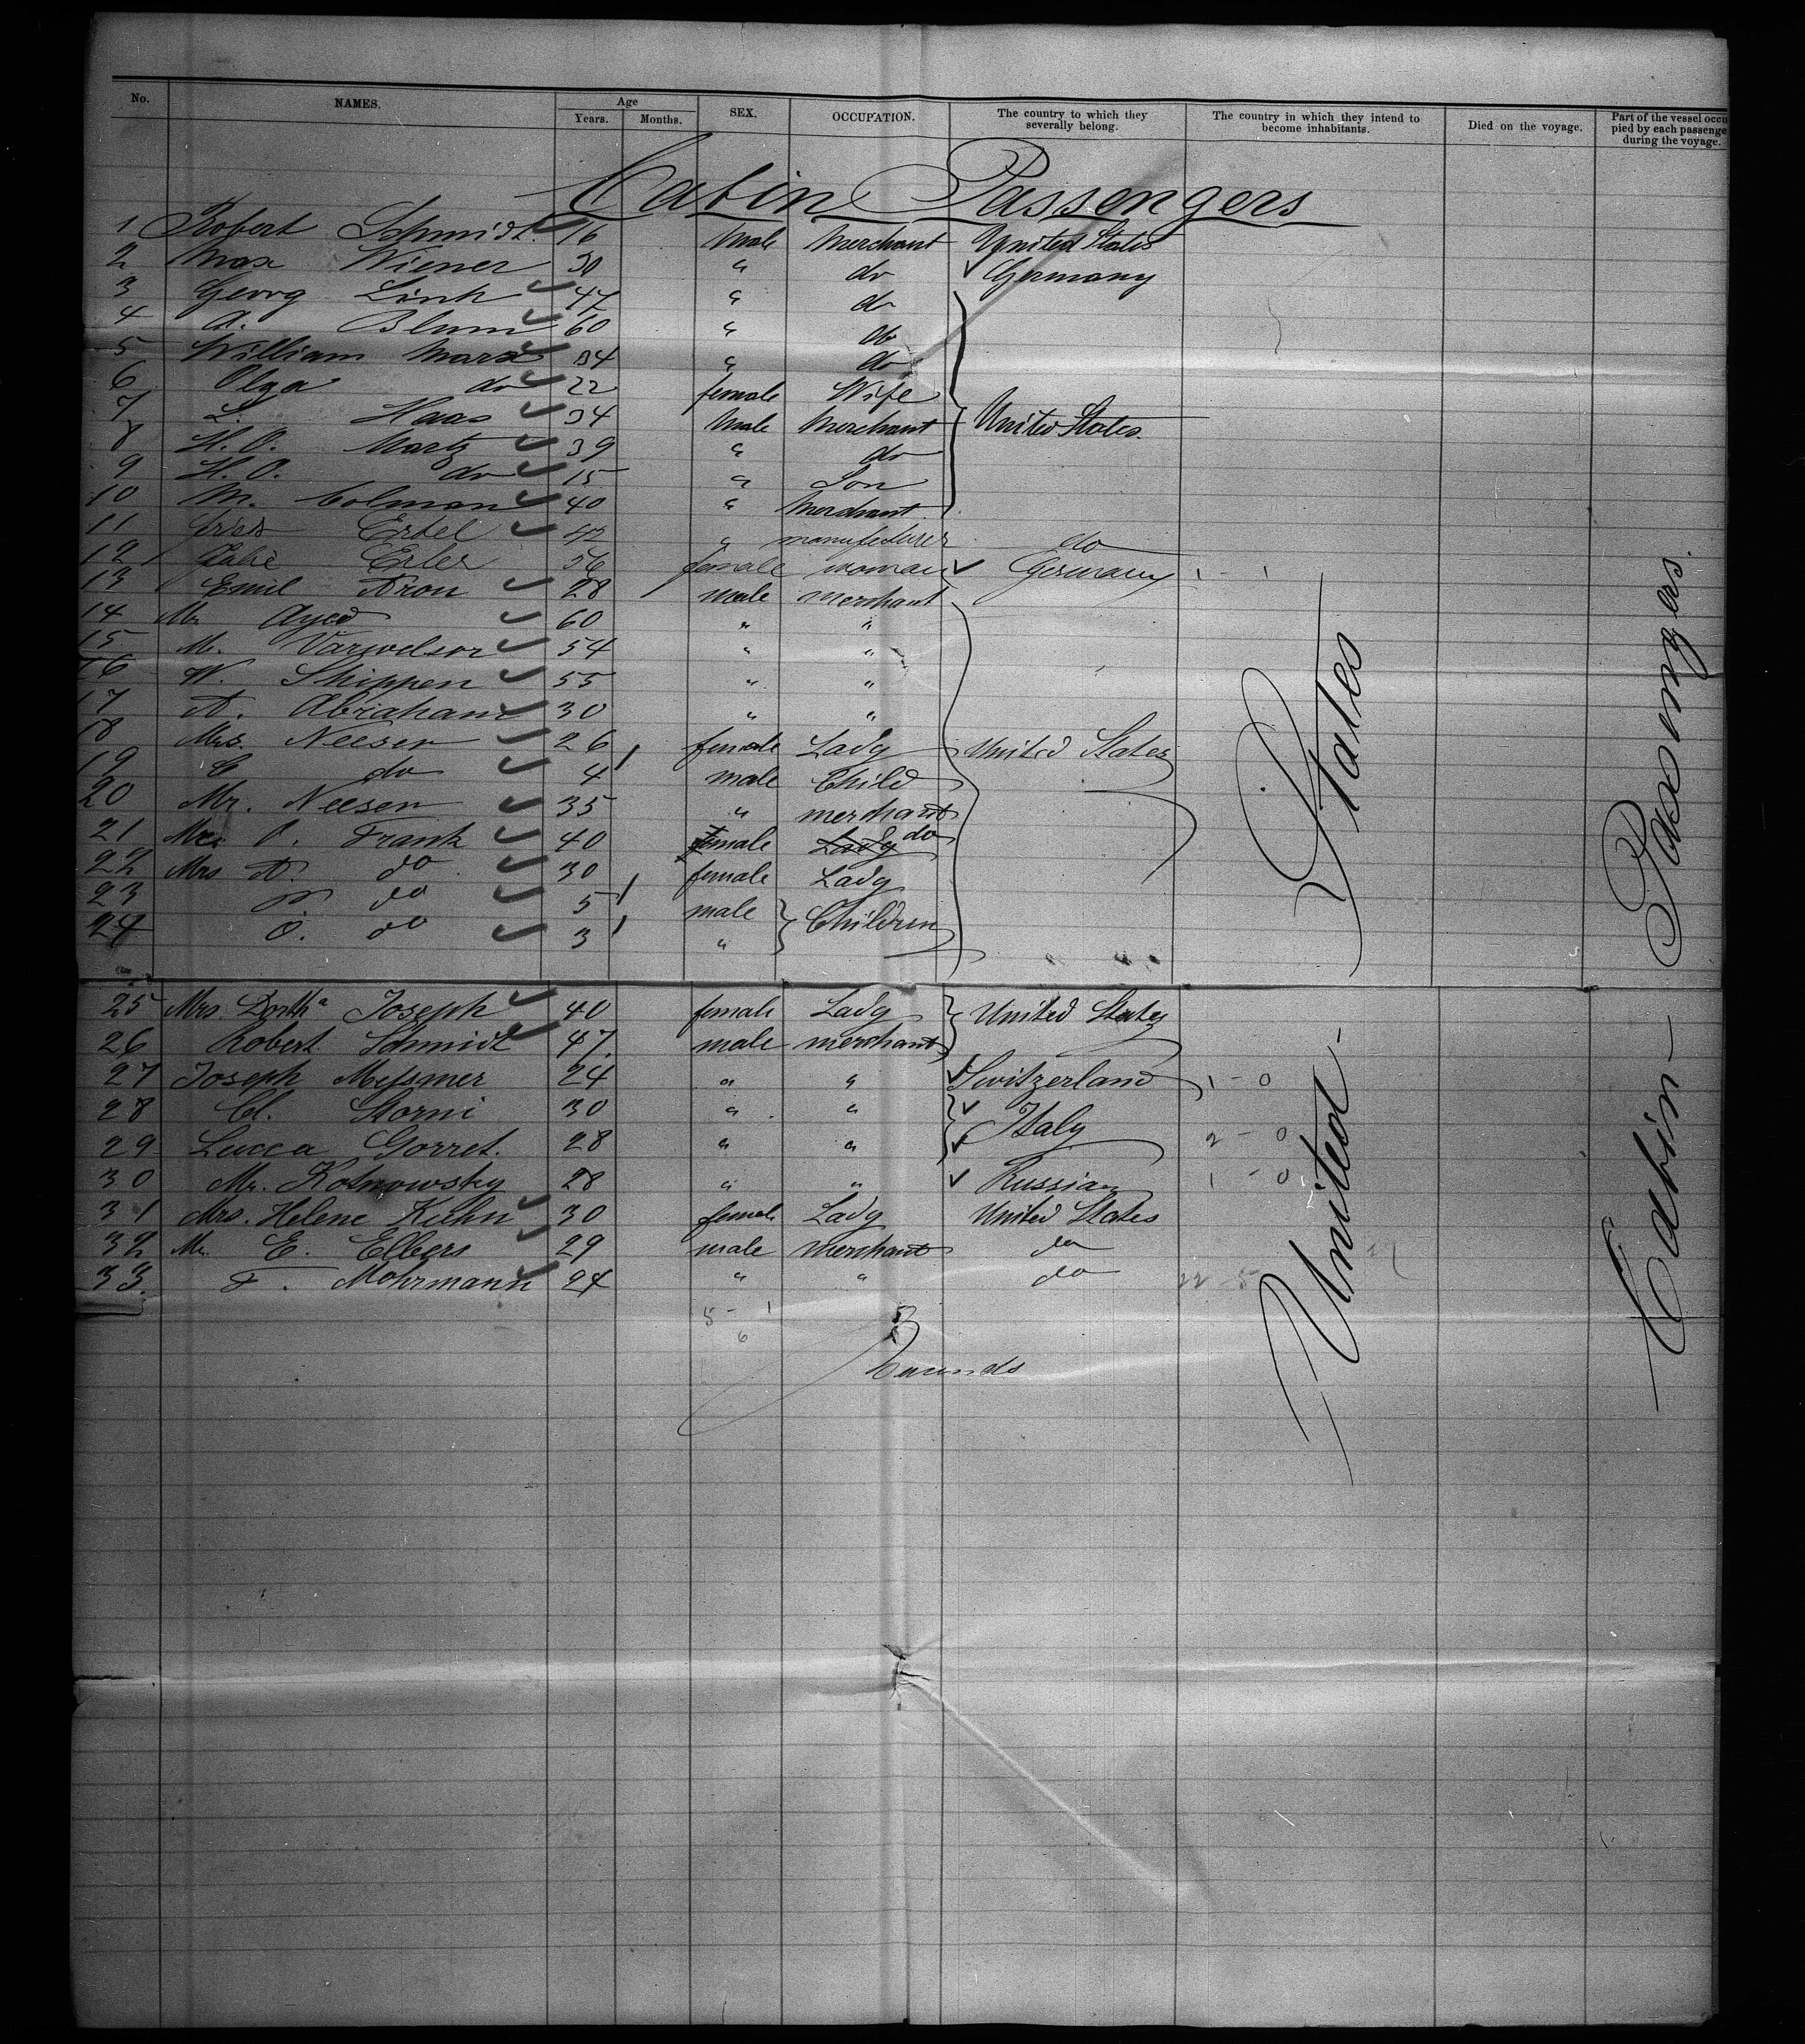 No. NAMES. Age Years. Months. SEX. OCCUPATION. The country to which they severally belong. The country in which they intend to become inhabitants. Died on the voyage. Part of the vessel occupied by each passenger during the voyage.
Cabin Passengers
1 Robert Schmidt. 16 Male Merchant United States
2 Max Wiener 30 " do Germany
3 Georg Link 47 " do
4 A. Blum 60 " do
5 William Marx 34 " do
6 Olga do 22 female Wife
7 L. Haas 34 Male Merchant United States.
8 H. O. Martz 39 " do
9 H. O. do 15 " Son
10 M. Colman 40 " Merchant
11 Ertel 42 " manufacturer do
12 Erler 56 female woman Germany 1 - 1
13 Emil Aron 28 male merchant
14 Mr 60 " "
15 M. 54 " "
16 W. Shippen 55 " "
17 A. Abraham 30 " "
18 Mrs. Neesen 26 female Lady United States
19 C do 4 male Child
20 Mr. Neesen 35 " merchant
21 O. Frank 40 male Lady do
22 Mrs A. do 30 female Lady
23 do 5 male Children
24 O. do 3 "
25 Mrs. Dortha Joseph 40 female Lady United States
26 Robert Schmidt 47. male merchant
27 Joseph Messmer 24 " " Switzerland 1 - 0
28 Cl. Storni 30 " " Italy
29 Lucca Gorret. 28 " " 2 - 0
30 Mr. Kotnowsky 28 " " Russian 1 - 0
31 Mrs. Helene Kuhn 30 female Lady United States
32 Mr. E. Elbers 29 male Merchant do
33. F. Mohrmann 24 " " do
5 - 1
6
United States
Cabin Passengers.